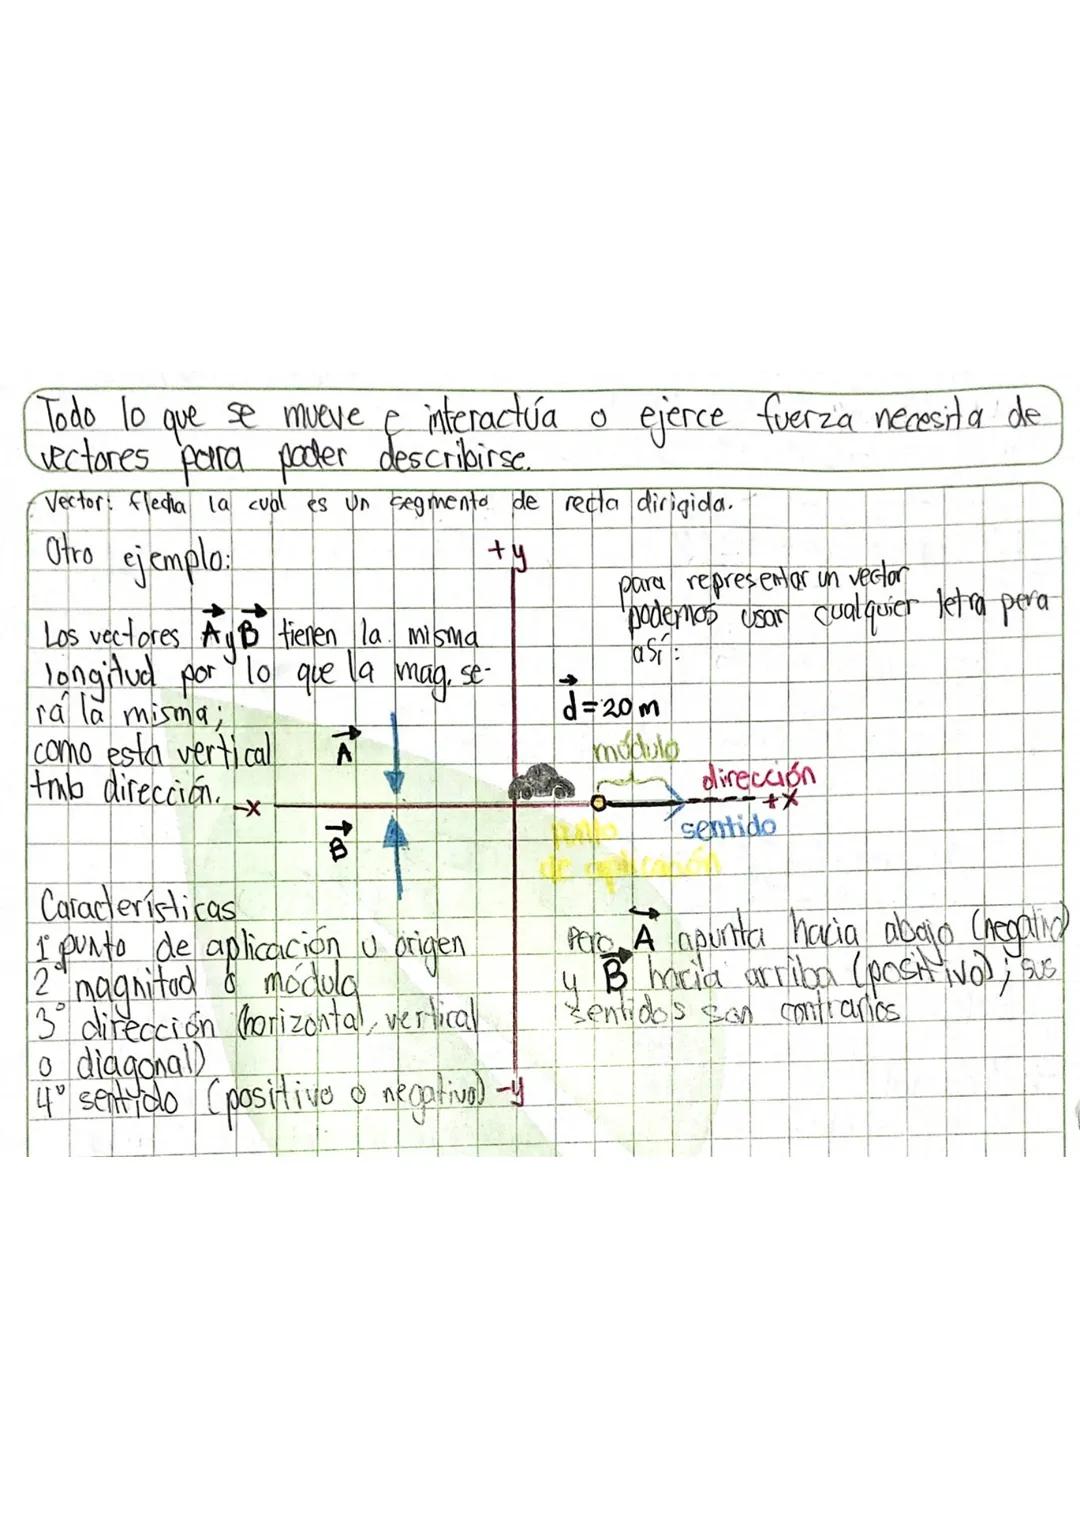 Todo lo que se mueve e interactúa o ejerce fuerza necesita de
vectores para poder describirse.
Vector: flecha la cual es un segmento de recta dirigida.
Otro ejemplo:
+y
para representar un vector
podemos usar cualquier letra pera
así:
Los vectores A y B tienen la misma
longitud por lo que la mag. se-
rá la misma;
como esta vertical
tmb dirección.
d = 20 m
módulo
dirección
A
-x
+x
sentido
punto
de aplicación
B
Características
1° punto de aplicación u origen
2° magnitud o módulo
3° dirección (horizontal, vertical
o diagonal)
4° sentido (positivo o negativo)
-y
Pero A apunta hacia abajo (negativo)
y B hacia arriba (positivo); sus
sentidos son contrarios